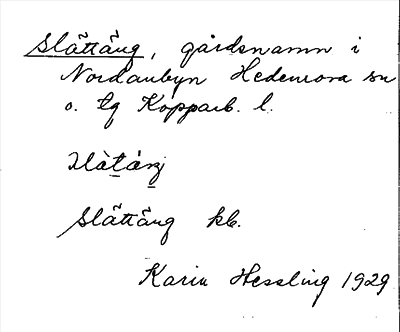 Slättäng, gårdsnamn i
Nordanbyn Hedemora sn
o. tg Kopparb. l.
Slättäng kb.
Karin Hessling 1929